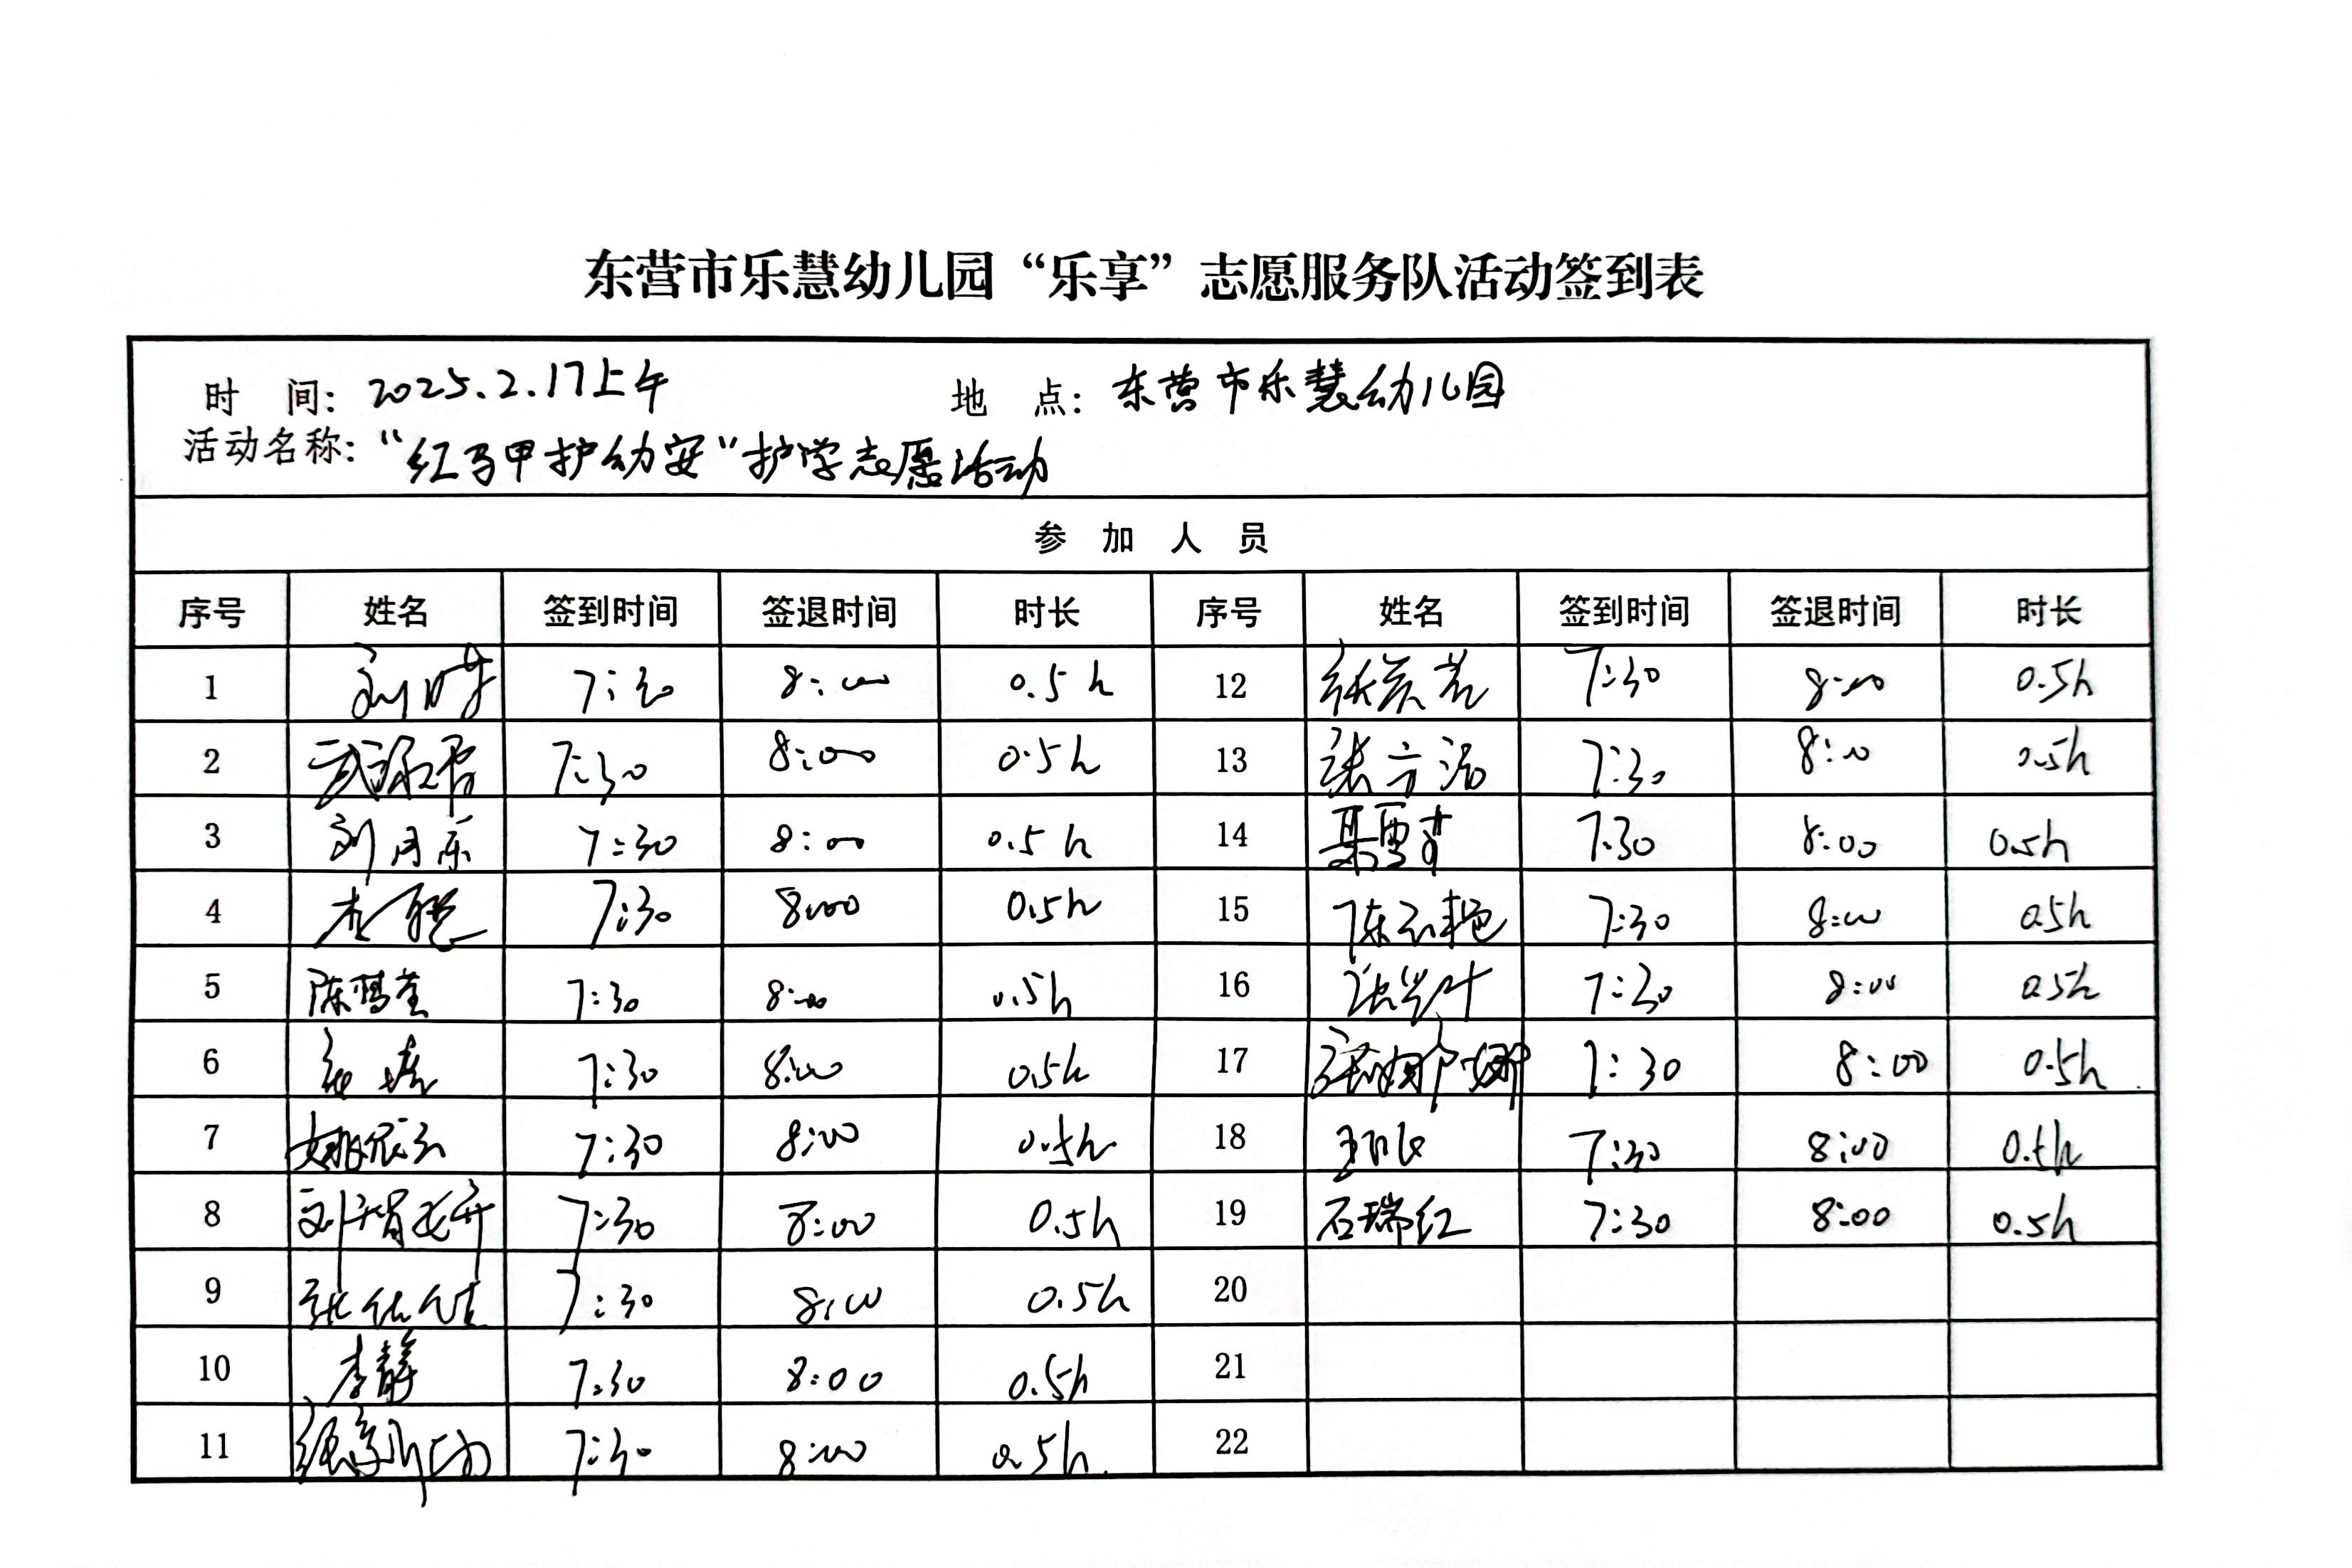 东营市乐慧幼儿园“乐享”志愿服务队活动签到表
时 间：2025.2.17上午 地 点：东营市乐慧幼儿园
活动名称：“红马甲护幼安”护学志愿活动
参 加 人 员
序号 姓名 签到时间 签退时间 时长 序号 姓名 签到时间 签退时间 时长
1 刘 7:30 8:00 0.5h 12 张 7:30 8:00 0.5h
2 武 7:30 8:00 0.5h 13 张方洁 7:30 8:00 0.5h
3 刘月乐 7:30 8:00 0.5h 14 7:30 8:00 0.5h
4 7:30 8:00 0.5h 15 陈云艳 7:30 8:00 0.5h
5 陈 7:30 8:00 0.5h 16 张 叶 7:30 8:00 0.5h
6 7:30 8:00 0.5h 17 张娜娜 7:30 8:00 0.5h
7 姚 7:30 8:00 0.5h 18 王 7:30 8:00 0.5h
8 刘 7:30 8:00 0.5h 19 石瑞红 7:30 8:00 0.5h
9 张 7:30 8:00 0.5h 20
10 李静 7:30 8:00 0.5h 21
11 7:30 8:00 0.5h 22